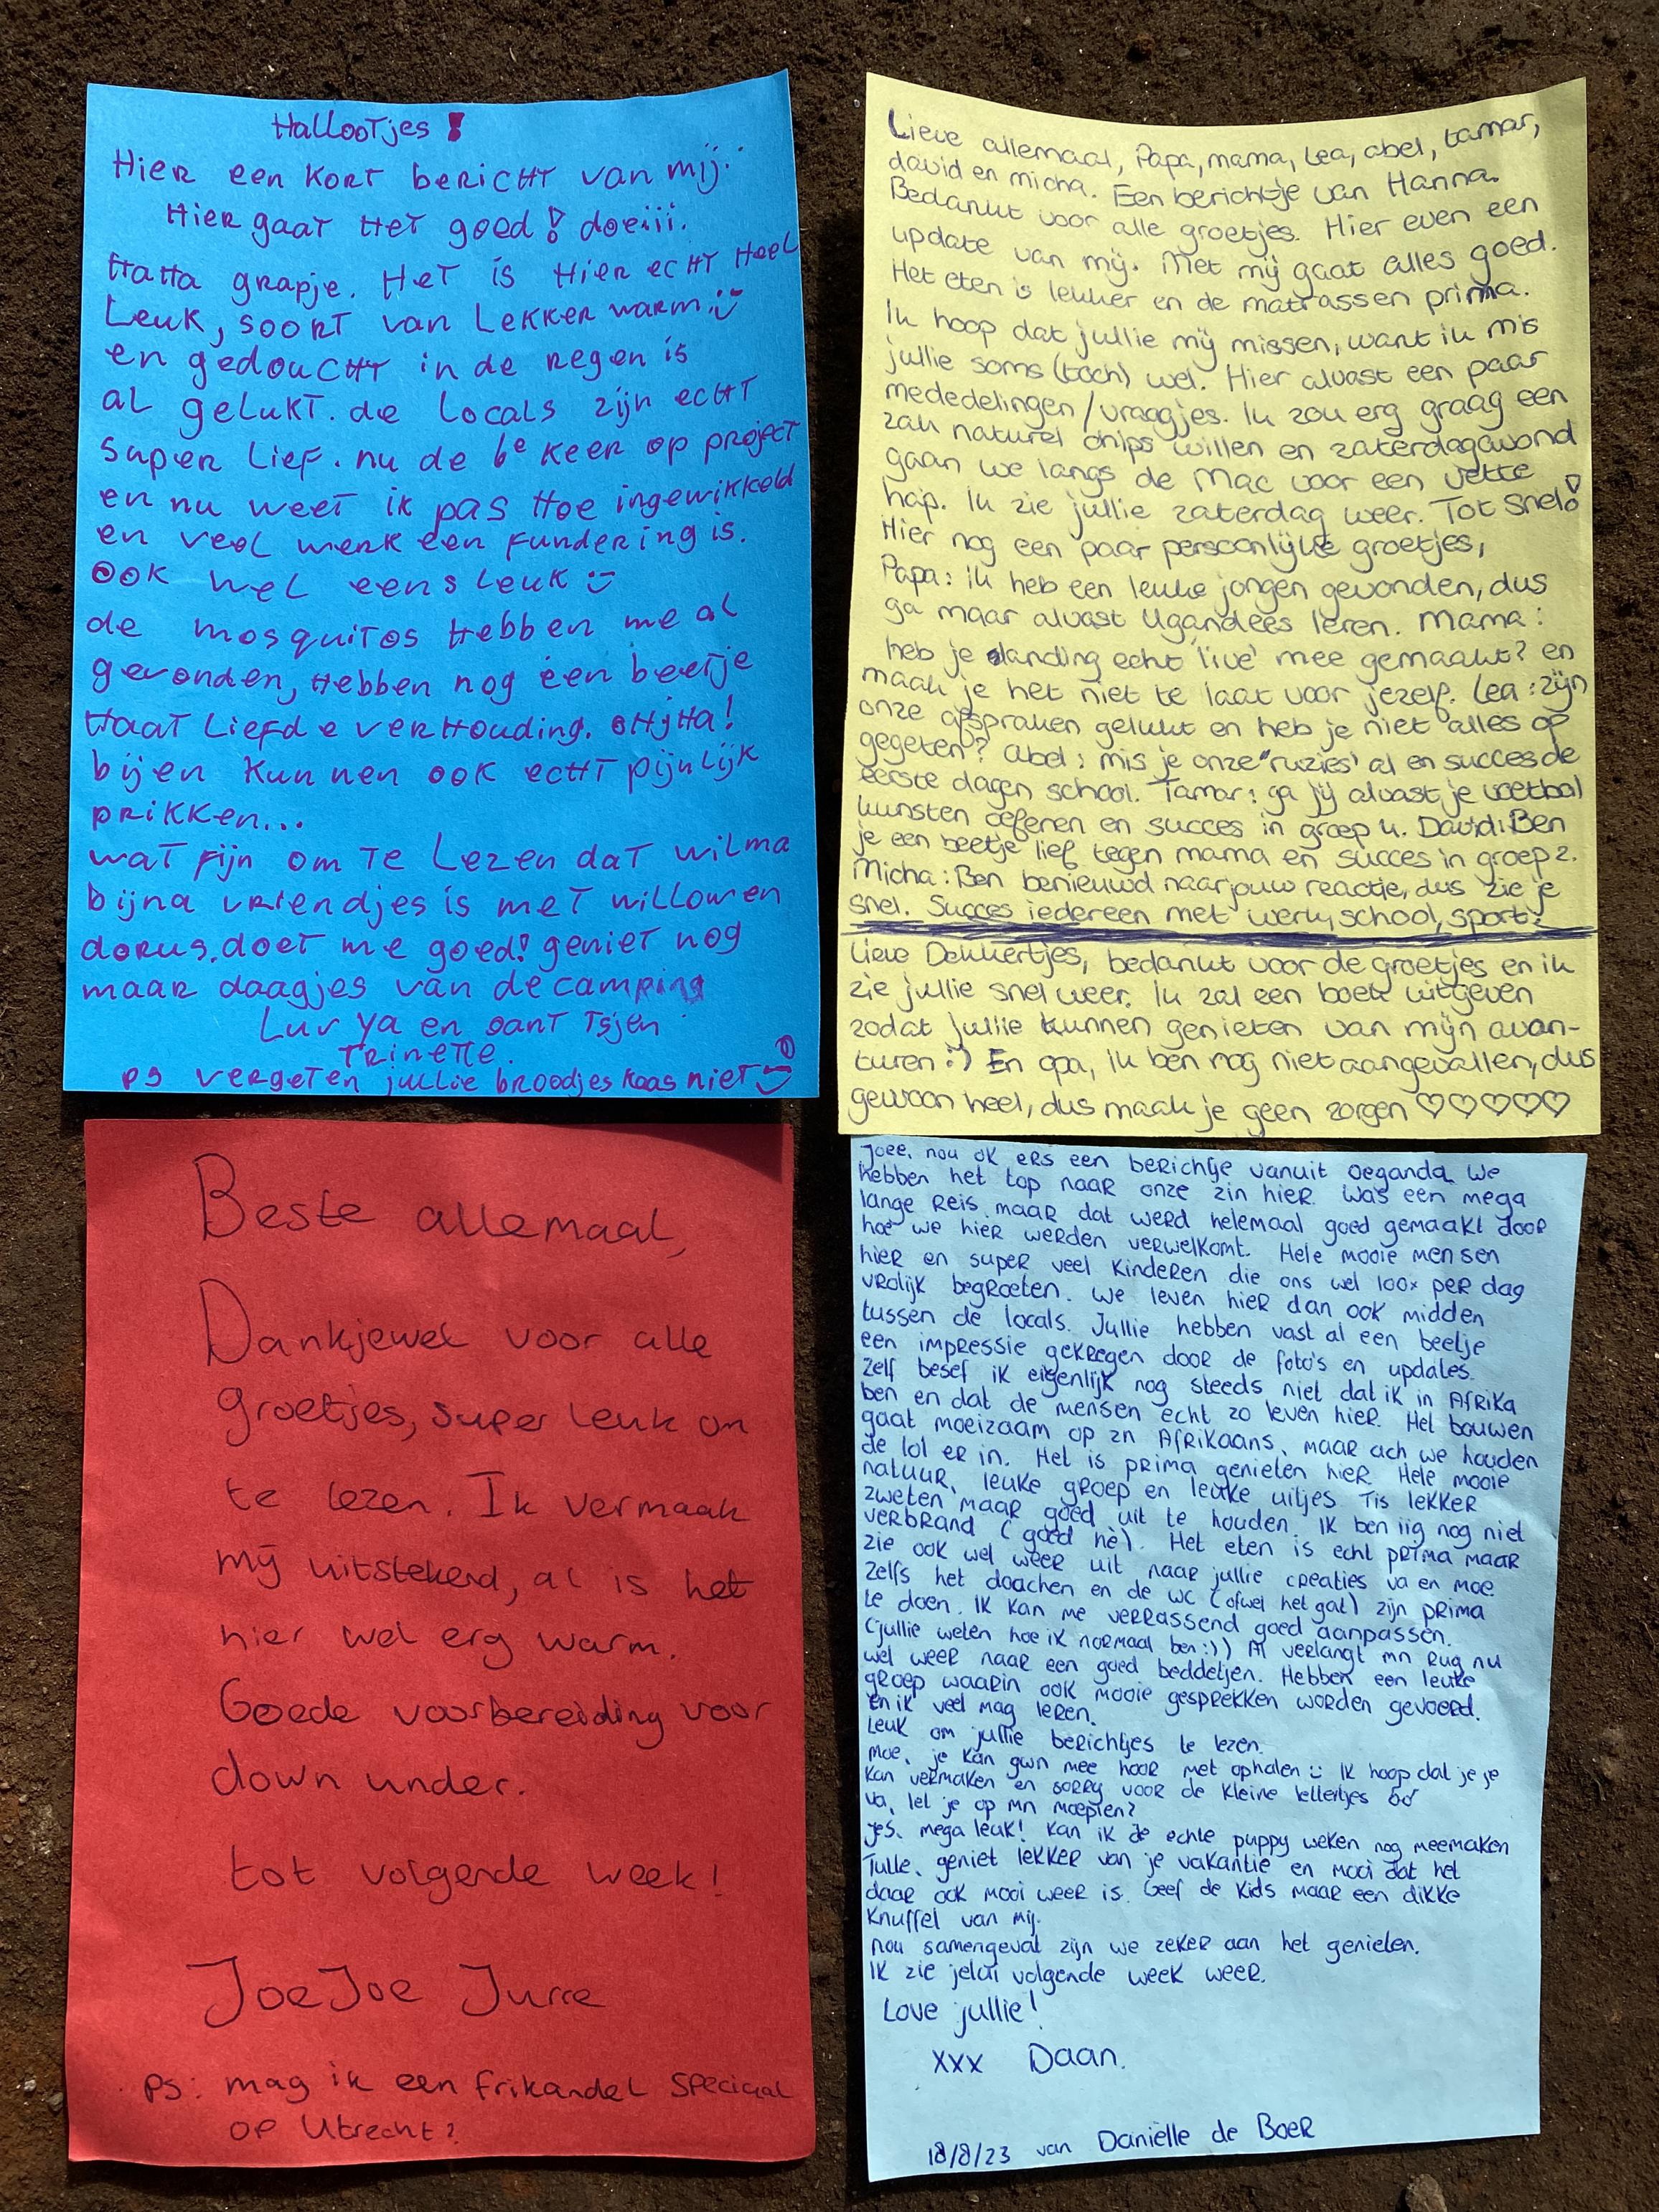 Hallootjes!
Hier een kort bericht van mij:
Hier gaat het goed! doeiii.
Haha grapje. Het is hier echt heel
Leuk, soort van Lekker warm :)
en gedoucht in de regen is
al gelukt. de Locals zijn echt
super lief. nu de 6e keer op project
en nu weet ik pas hoe ingewikkeld
en veel werk een fundering is.
ook wel eens leuk :)
de mosquitos hebben me al
gevonden, hebben nog een beetje
haat liefde verhouding. ahjha!
bijen kunnen ook echt pijnlijk
prikken...
wat fijn om te Lezen dat wilma
bijna vriendjes is met willow en
dorus. doet me goed! geniet nog
maar daagjes van de camping
Luv ya en
Trinette.
ps vergeten jullie broodjes kaas niet :)
Lieve allemaal, Papa, mama, Lea, abel, tamar,
david en micha. Een berichtje van Hanna.
Bedankt voor alle groetjes. Hier even een
update van mij. Met mij gaat alles goed.
Het eten is lekker en de matrassen prima.
Ik hoop dat jullie mij missen, want ik mis
jullie soms (toch) wel. Hier alvast een paar
mededelingen/vraagjes. Ik zou erg graag een
zak naturel chips willen en zaterdagavond
gaan we langs de Mac voor een vette
hap. Ik zie jullie zaterdag weer. Tot snel!
Hier nog een paar persoonlijke groetjes,
Papa: ik heb een leuke jongen gevonden, dus
ga maar alvast Ugandees leren. Mama:
heb je landing echt 'live' mee gemaakt? en
maak je het niet te laat voor jezelf. Lea: zijn
onze afspraken gelukt en heb je niet alles op
gegeten? Abel: mis je onze "ruzies' al en succes de
eerste dagen school. Tamar: ga jij alvast je voetbal
kunsten oefenen en succes in groep 4. David: Ben
je een beetje lief tegen mama en succes in groep 2.
Micha: Ben benieuwd naar jouw reactie, dus zie je
snel. Succes iedereen met werk, school, sport!
Lieve Dekkertjes, bedankt voor de groetjes en ik
zie jullie snel weer. Ik zal een boek uitgeven
zodat jullie kunnen genieten van mijn avon-
turen :) En opa, ik ben nog niet aangevallen, dus
gewoon heel, dus maak je geen zorgen ♡♡♡♡♡
Beste allemaal,
Dankjewel voor alle
groetjes, super leuk om
te lezen. Ik vermaak
mij uitstekend, al is het
hier wel erg warm.
Goede voorbereiding voor
down under.
tot volgende week!
JoeJoe Jurre
PS: mag ik een frikandel speciaal
op Utrecht?
Joee, nou ok ers een berichtje vanuit Oeganda. We
hebben het top naar onze zin hier. Was een mega
lange reis maar dat werd helemaal goed gemaakt door
hoe we hier werden verwelkomt. Hele mooie mensen
hier en super veel kinderen die ons wel 100x per dag
vrolijk begroeten. We leven hier dan ook midden
tussen de locals. Jullie hebben vast al een beetje
een impressie gekregen door de foto's en updates.
Zelf besef ik eigenlijk nog steeds niet dat ik in Afrika
ben en dat de mensen echt zo leven hier. Het bouwen
gaat moeizaam op zn Afrikaans, maar ach we houden
de lol er in. Het is prima genieten hier. Hele mooie
natuur, leuke groep en leuke uitjes. Tis lekker
zweten maar goed uit te houden. Ik ben iig nog niet
verbrand (goed hè). Het eten is echt prima maar
zie ook wel weer uit naar jullie creaties va en moe.
Zelfs het douchen en de wc (ofwel het gat) zijn prima
te doen. Ik kan me verrassend goed aanpassen.
(jullie weten hoe ik normaal ben :)) Al verlangt mn rug nu
wel weer naar een goed beddetjen. Hebben een leuke
groep waarin ook mooie gesprekken worden gevoerd.
en ik veel mag leren.
Leuk om jullie berichtjes te lezen.
Moe, je kan gwn mee hoor met ophalen :) Ik hoop dat je je
kan vermaken en sorry voor de kleine lettertjes
va, let je op mn moepien?
Jes, mega leuk! Kan ik de echte puppy weken nog meemaken
Tulle, geniet lekker van je vakantie en mooi dat het
daar ook mooi weer is. Geef de kids maar een dikke
knuffel van mij.
nou samengevat zijn we zeker aan het genieten.
Ik zie jelui volgende week weer.
Love jullie!
xxx Daan.
18/8/23 van Daniëlle de Boer